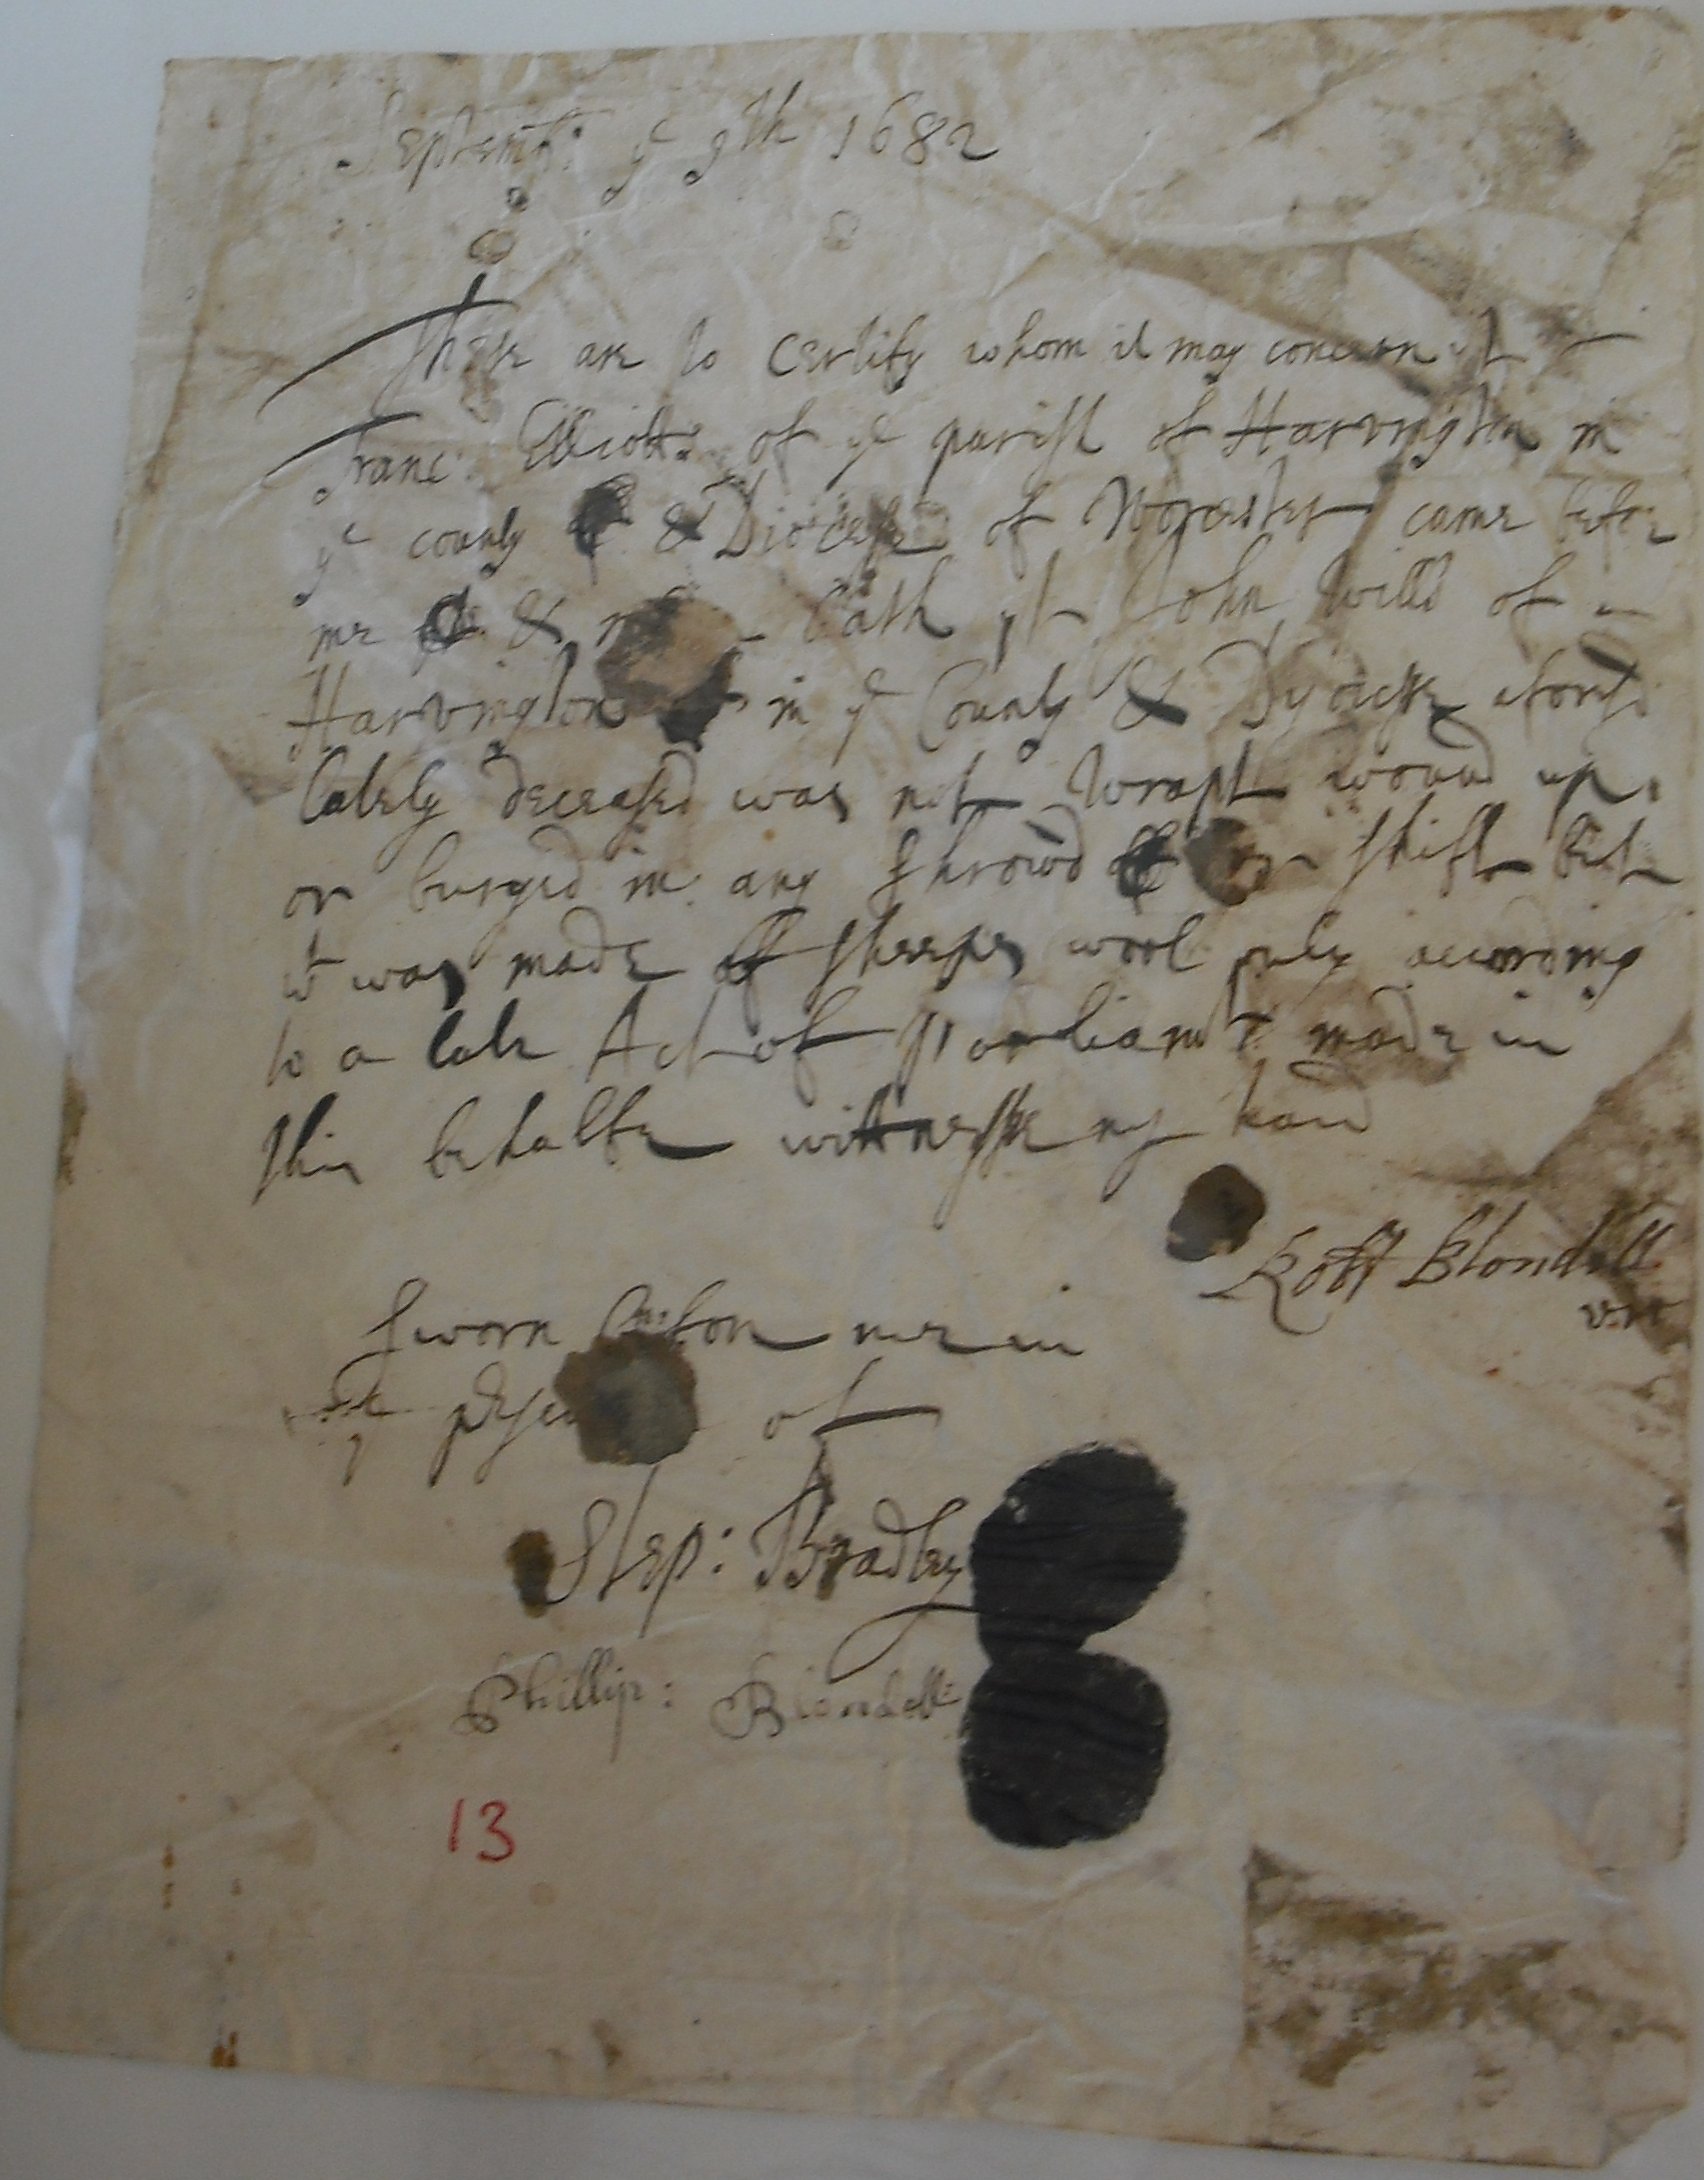 Septemb: ye 9th 1682
These are to certify whom it may concern yt
Franc: Elliotts of ye parish of Harvington in
ye county & Diocesse of Worcester came before
me & oath yt John Wills of
Harvington in ye County & Dyocesse aforesd
lately deceased was not wrapt wound up
or buryed in any shrowd or shift but
wt was made of sheeps wool only according
to a late Act of parliamt made in
this behalfe wittnesse my hand
Robt Blondell
Sworn before me in
ye of
Step: Bradley
Phillip: Blondell
13